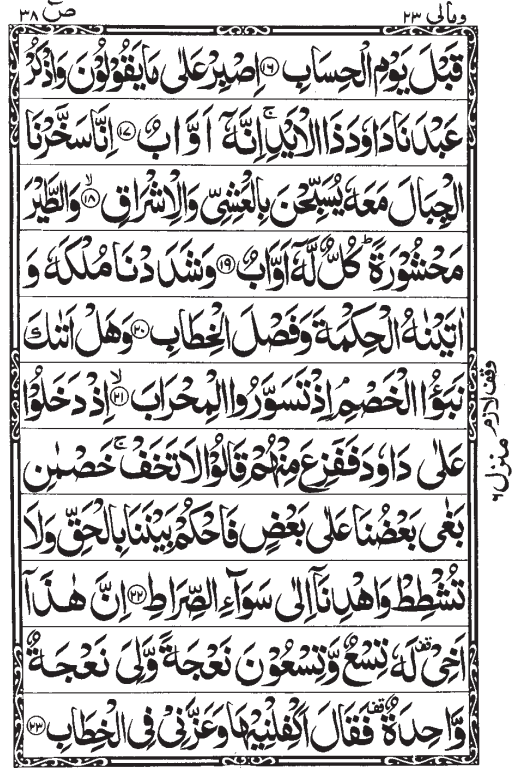 ومالی ۲۳
صٓ ۳۸
قَبۡلَ یَوۡمِ الۡحِسَابِ ﴿۱۶﴾ اِصۡبِرۡ عَلٰی مَا یَقُوۡلُوۡنَ وَاذۡکُرۡ
عَبۡدَنَا دَاوٗدَ ذَا الۡاَیۡدِ ۚ اِنَّہٗۤ اَوَّابٌ ﴿۱۷﴾ اِنَّا سَخَّرۡنَا
الۡجِبَالَ مَعَہٗ یُسَبِّحۡنَ بِالۡعَشِیِّ وَالۡاِشۡرَاقِ ﴿ۙ۱۸﴾ وَالطَّیۡرَ
مَحۡشُوۡرَۃً ؕ کُلٌّ لَّہٗۤ اَوَّابٌ ﴿۱۹﴾ وَشَدَدۡنَا مُلۡکَہٗ وَ
اٰتَیۡنٰہُ الۡحِکۡمَۃَ وَفَصۡلَ الۡخِطَابِ ﴿۲۰﴾ وَہَلۡ اَتٰىکَ
نَبَؤُا الۡخَصۡمِ ۘ اِذۡ تَسَوَّرُوا الۡمِحۡرَابَ ﴿ۙ۲۱﴾ اِذۡ دَخَلُوۡا
عَلٰی دَاوٗدَ فَفَزِعَ مِنۡہُمۡ قَالُوۡا لَا تَخَفۡ ۚ خَصۡمٰنِ
بَغٰی بَعۡضُنَا عَلٰی بَعۡضٍ فَاحۡکُمۡ بَیۡنَنَا بِالۡحَقِّ وَلَا
تُشۡطِطۡ وَاہۡدِنَاۤ اِلٰی سَوَآءِ الصِّرَاطِ ﴿۲۲﴾ اِنَّ ہٰذَاۤ
اَخِیۡ ۟ لَہٗ تِسۡعٌ وَّتِسۡعُوۡنَ نَعۡجَۃً وَّلِیَ نَعۡجَۃٌ
وَّاحِدَۃٌ ۟ فَقَالَ اَکۡفِلۡنِیۡہَا وَعَزَّنِیۡ فِی الۡخِطَابِ ﴿۲۳﴾
وقف لازم
منزل ۶